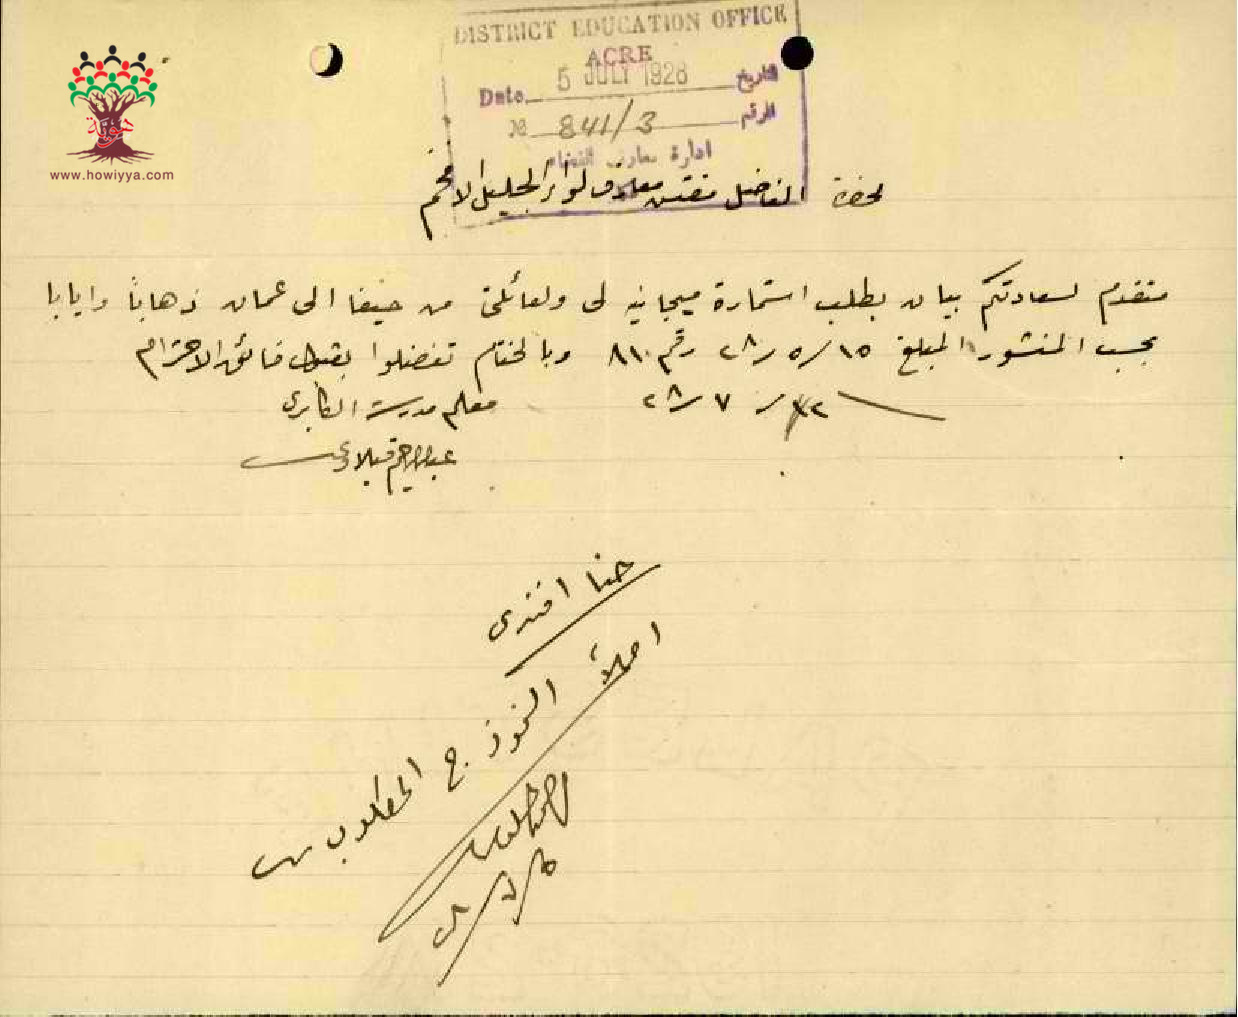 DISTRICT EDUCATION OFFICE
ACRE
Date 5 JULY 1928 التاريخ
№ 841/3 الرقم
ادارة معارف القضاء
هوية
www.howiyya.com
لحضرة الفاضل مفتش معارف لواء الجليل الافخم
متقدم لسعادتكم بيان بطلب استمارة مجانيه لي ولعائلتي من حيفا الى عمان ذهاباً وايابا
بحسب المنشور المبلغ ١٥/٥/٢٨ رقم ٨١ وبالختام تفضلوا بقبول فائق الاحترام
٧/٢٨ معلم مدرسة الكابري
حنا افندي
املأ النموذج المطلوب